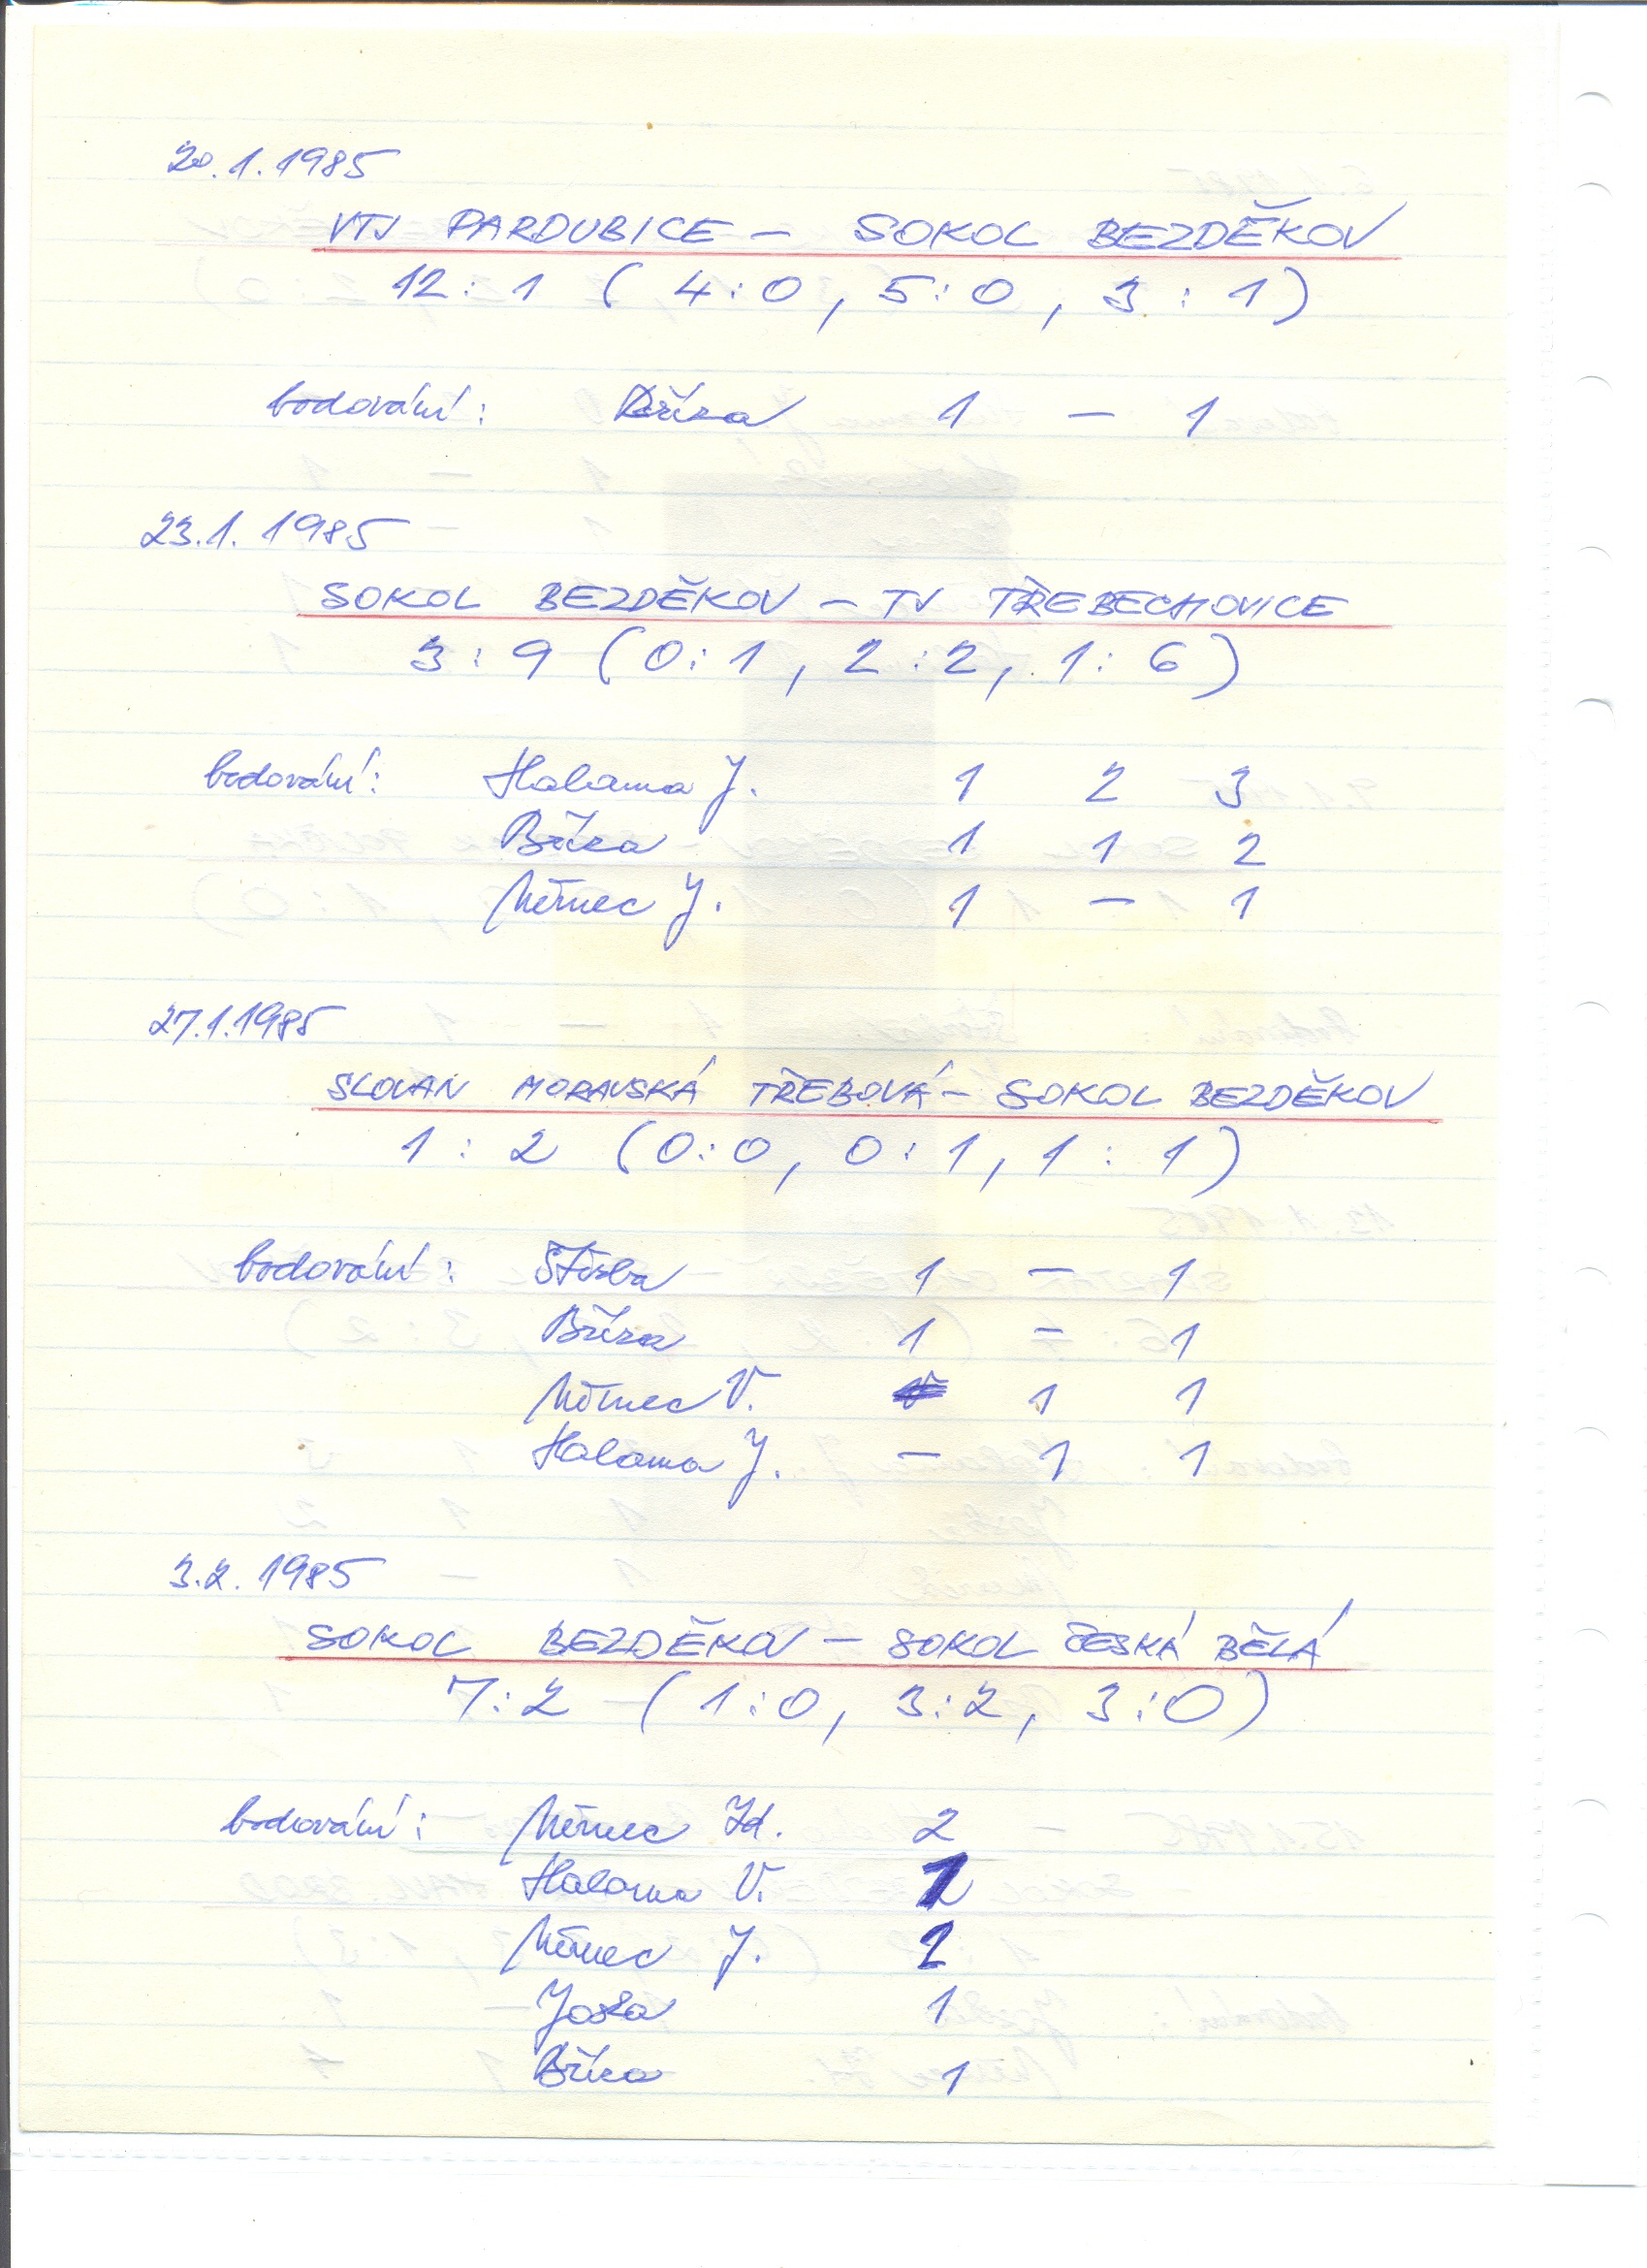 20.1.1985
VTJ PARDUBICE – SOKOL BEZDĚKOV
12:1 (4:0, 5:0, 3:1)
bodování: Bříza 1 – 1
23.1.1985
SOKOL BEZDĚKOV – TJ TŘEBECHOVICE
3:9 (0:1, 2:2, 1:6)
bodování: Halama J. 1 2 3
Bříza 1 1 2
Němec J. 1 – 1
27.1.1985
SLOVAN MORAVSKÁ TŘEBOVÁ – SOKOL BEZDĚKOV
1:2 (0:0, 0:1, 1:1)
bodování: 1 – 1
Bříza 1 – 1
Němec V. 1 1
Halama J. – 1 1
3.2.1985
SOKOL BEZDĚKOV – SOKOL ČESKÁ BĚLÁ
7:2 (1:0, 3:2, 3:0)
bodování: Němec Zd. 2
Halama V.
Němec J.
Joska 1
Bříza 1